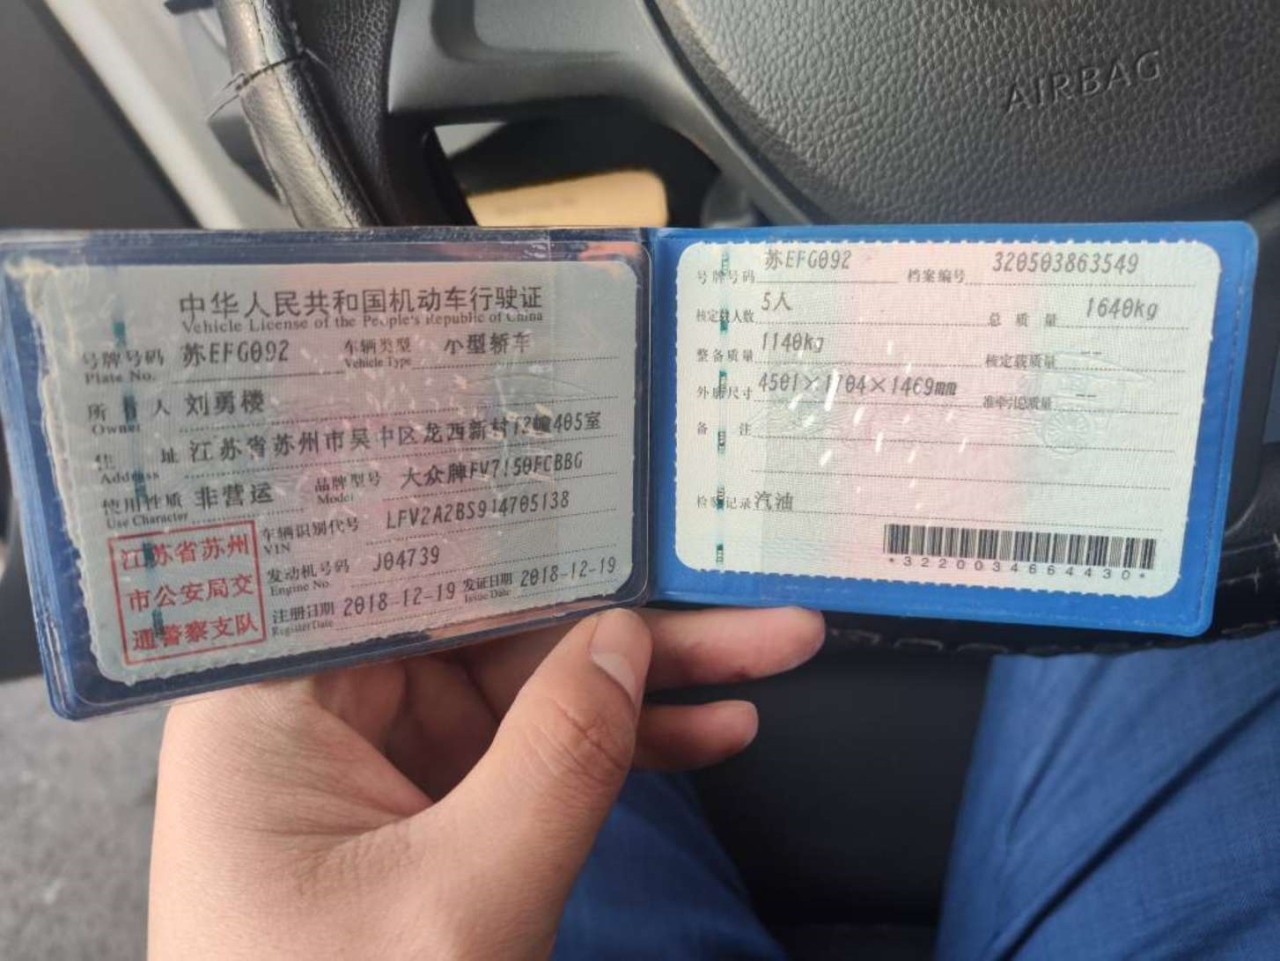 AIRBAG
中华人民共和国机动车行驶证
Vehicle License of the People's Republic of China
号牌号码 苏EFG092 车辆类型 小型轿车
Plate No. Vehicle Type
所有人 刘勇楼
Owner
住 址 江苏省苏州市吴中区龙西新村12幢405室
Address
使用性质 非营运 品牌型号 大众牌FV7150FCBBG
Use Character Model
江苏省苏州
市公安局交
通警察支队
车辆识别代号 LFV2A2BS914705138
VIN
发动机号码 J04739
Engine No.
注册日期 2018-12-19 发证日期 2018-12-19
Register Date Issue Date
号牌号码 苏EFG092 档案编号 320503863549
核定载人数 5人 总质量 1640kg
整备质量 1140kg 核定载质量 --
外廓尺寸 4501×1704×1469mm 准牵引总质量 --
备 注
检验记录 汽油
*3220034664430*